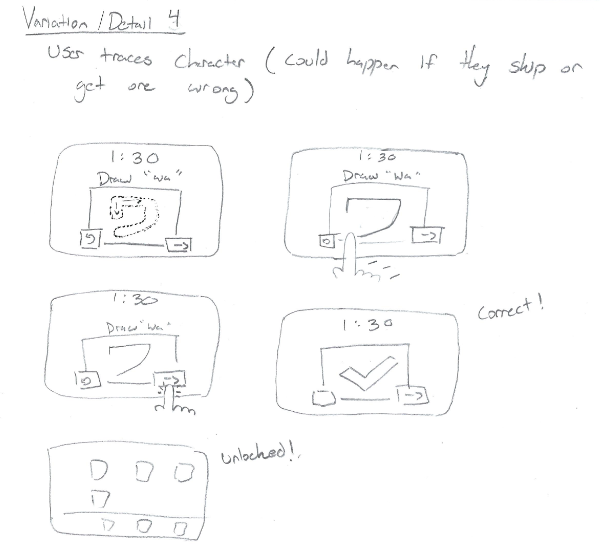 Variation / Detail 4
User traces character (could happen if they skip or
get one wrong)
1:30
Draw "wa"
1:30
Draw "wa"
1:30
Draw "wa"
1:30
Correct!
unlocked!